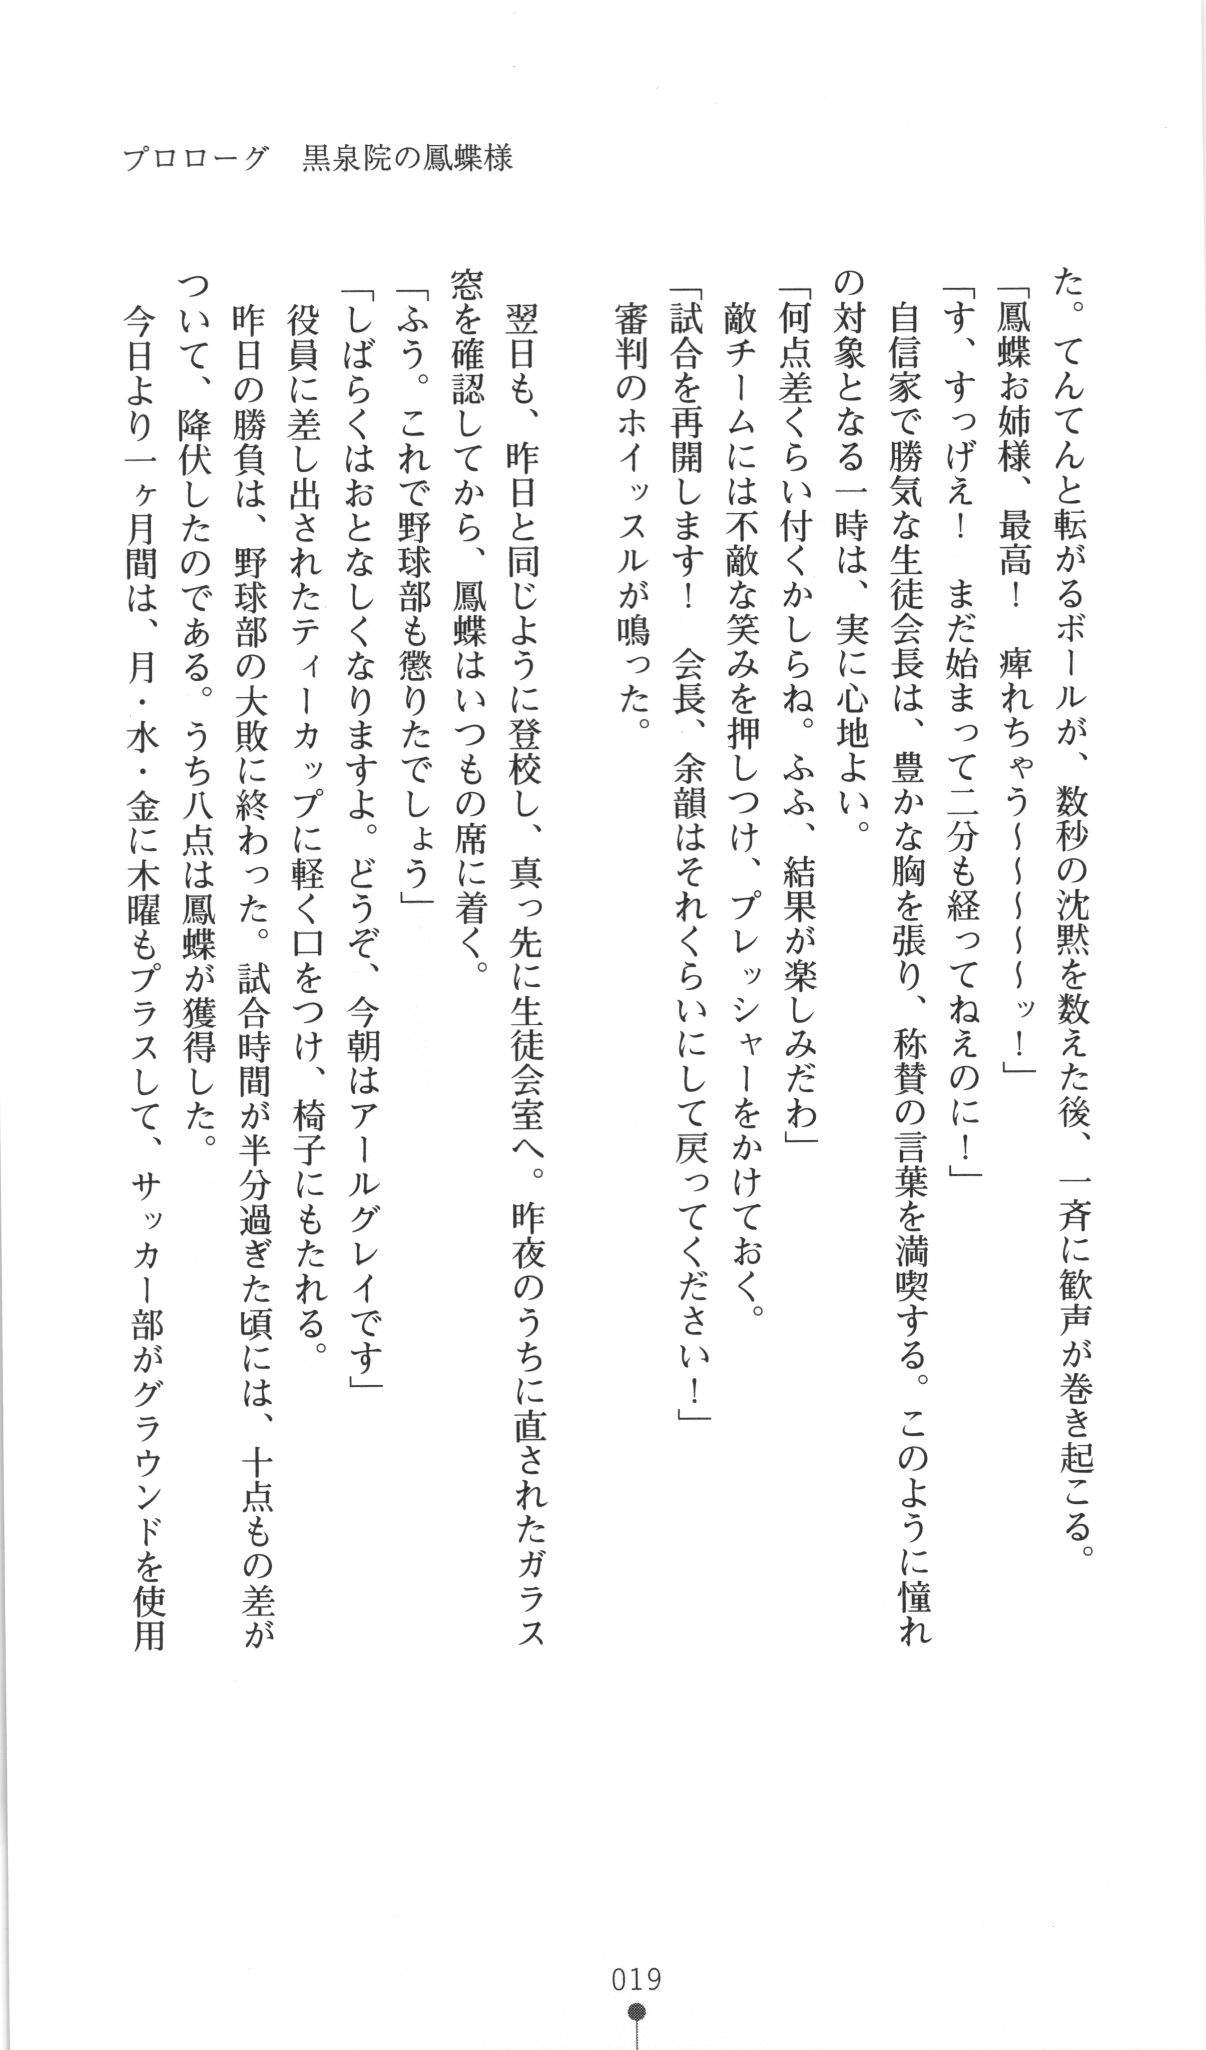 プロローグ　黒泉院の鳳蝶様
た。てんてんと転がるボールが、数秒の沈黙を数えた後、一斉に歓声が巻き起こる。
「鳳蝶お姉様、最高！　痺れちゃう～～～～～ッ！」
「す、すっげえ！　まだ始まって二分も経ってねえのに！」
　自信家で勝気な生徒会長は、豊かな胸を張り、称賛の言葉を満喫する。このように憧れ
の対象となる一時は、実に心地よい。
「何点差くらい付くかしらね。ふふ、結果が楽しみだわ」
　敵チームには不敵な笑みを押しつけ、プレッシャーをかけておく。
「試合を再開します！　会長、余韻はそれくらいにして戻ってください！」
　審判のホイッスルが鳴った。
　翌日も、昨日と同じように登校し、真っ先に生徒会室へ。昨夜のうちに直されたガラス
窓を確認してから、鳳蝶はいつもの席に着く。
「ふう。これで野球部も懲りたでしょう」
「しばらくはおとなしくなりますよ。どうぞ、今朝はアールグレイです」
　役員に差し出されたティーカップに軽く口をつけ、椅子にもたれる。
　昨日の勝負は、野球部の大敗に終わった。試合時間が半分過ぎた頃には、十点もの差が
ついて、降伏したのである。うち八点は鳳蝶が獲得した。
　今日より一ヶ月間は、月・水・金に木曜もプラスして、サッカー部がグラウンドを使用
019